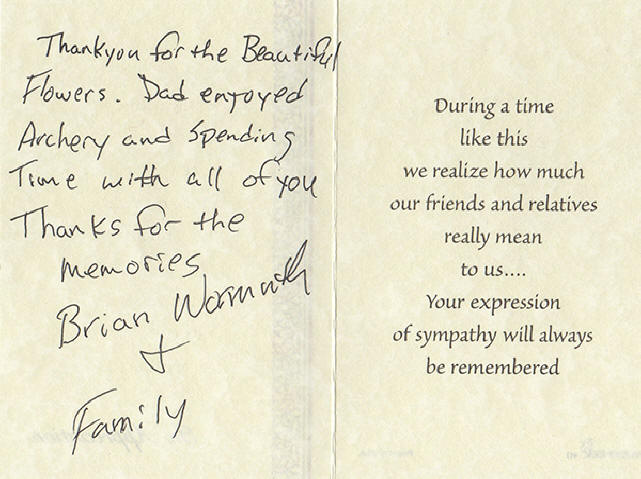 Thankyou for the Beautiful
Flowers. Dad enjoyed
Archery and Spending
Time with all of you
Thanks for the
memories
Brian Warmuth
+
Family
During a time
like this
we realize how much
our friends and relatives
really mean
to us....
Your expression
of sympathy will always
be remembered